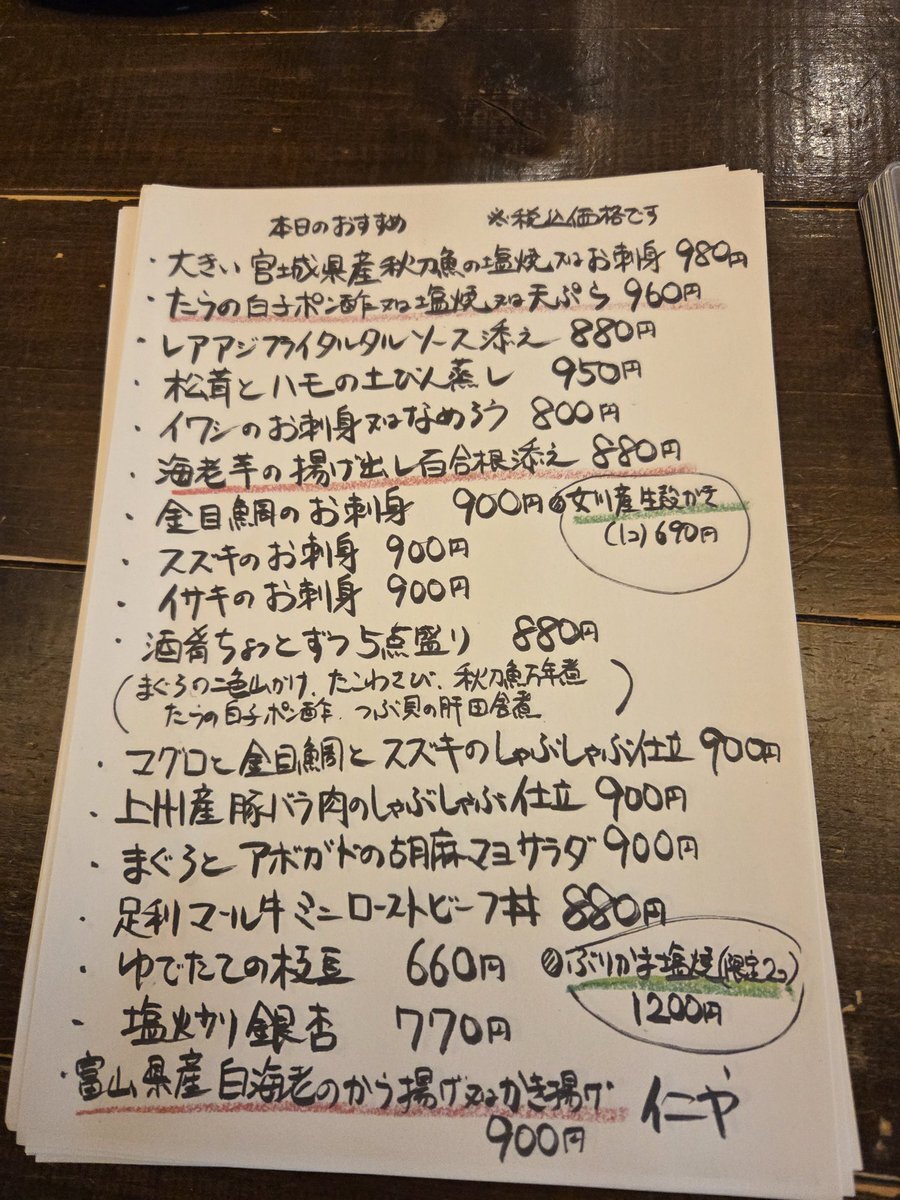 本日のおすすめ ※税込価格です
・大きい宮城県産秋刀魚の塩焼又はお刺身 980円
・たらの白子ポン酢又は塩焼又は天ぷら 960円
・レアアジフライタルタルソース添え 880円
・松茸とハモの土びん蒸し 950円
・イワシのお刺身又はなめろう 800円
・海老芋の揚げ出し百合根添え 880円
・金目鯛のお刺身 900円
女川産生殻かき
(1コ) 690円
・スズキのお刺身 900円
・イサキのお刺身 900円
・酒肴ちょっとずつ5点盛り 880円
(まぐろの二色山かけ、たこわさび、秋刀魚万年煮
たらの白子ポン酢、つぶ貝の肝田舎煮)
・マグロと金目鯛とスズキのしゃぶしゃぶ仕立 900円
・上州産豚バラ肉のしゃぶしゃぶ仕立 900円
・まぐろとアボガドの胡麻マヨサラダ 900円
・足利マール牛ミニローストビーフ丼 880円
・ゆでたての枝豆 660円
ぶりかま塩焼(限定2コ)
1200円
・塩炒り銀杏 770円
・富山県産白海老のから揚げ又はかき揚げ
900円
仁や